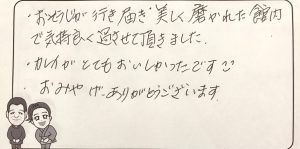 ・おそうじが行き届き 美しく磨かれた館内
で気持良く過させて頂きました.
・カレイがとてもおいしかったです
・おみやげ ありがとうございます